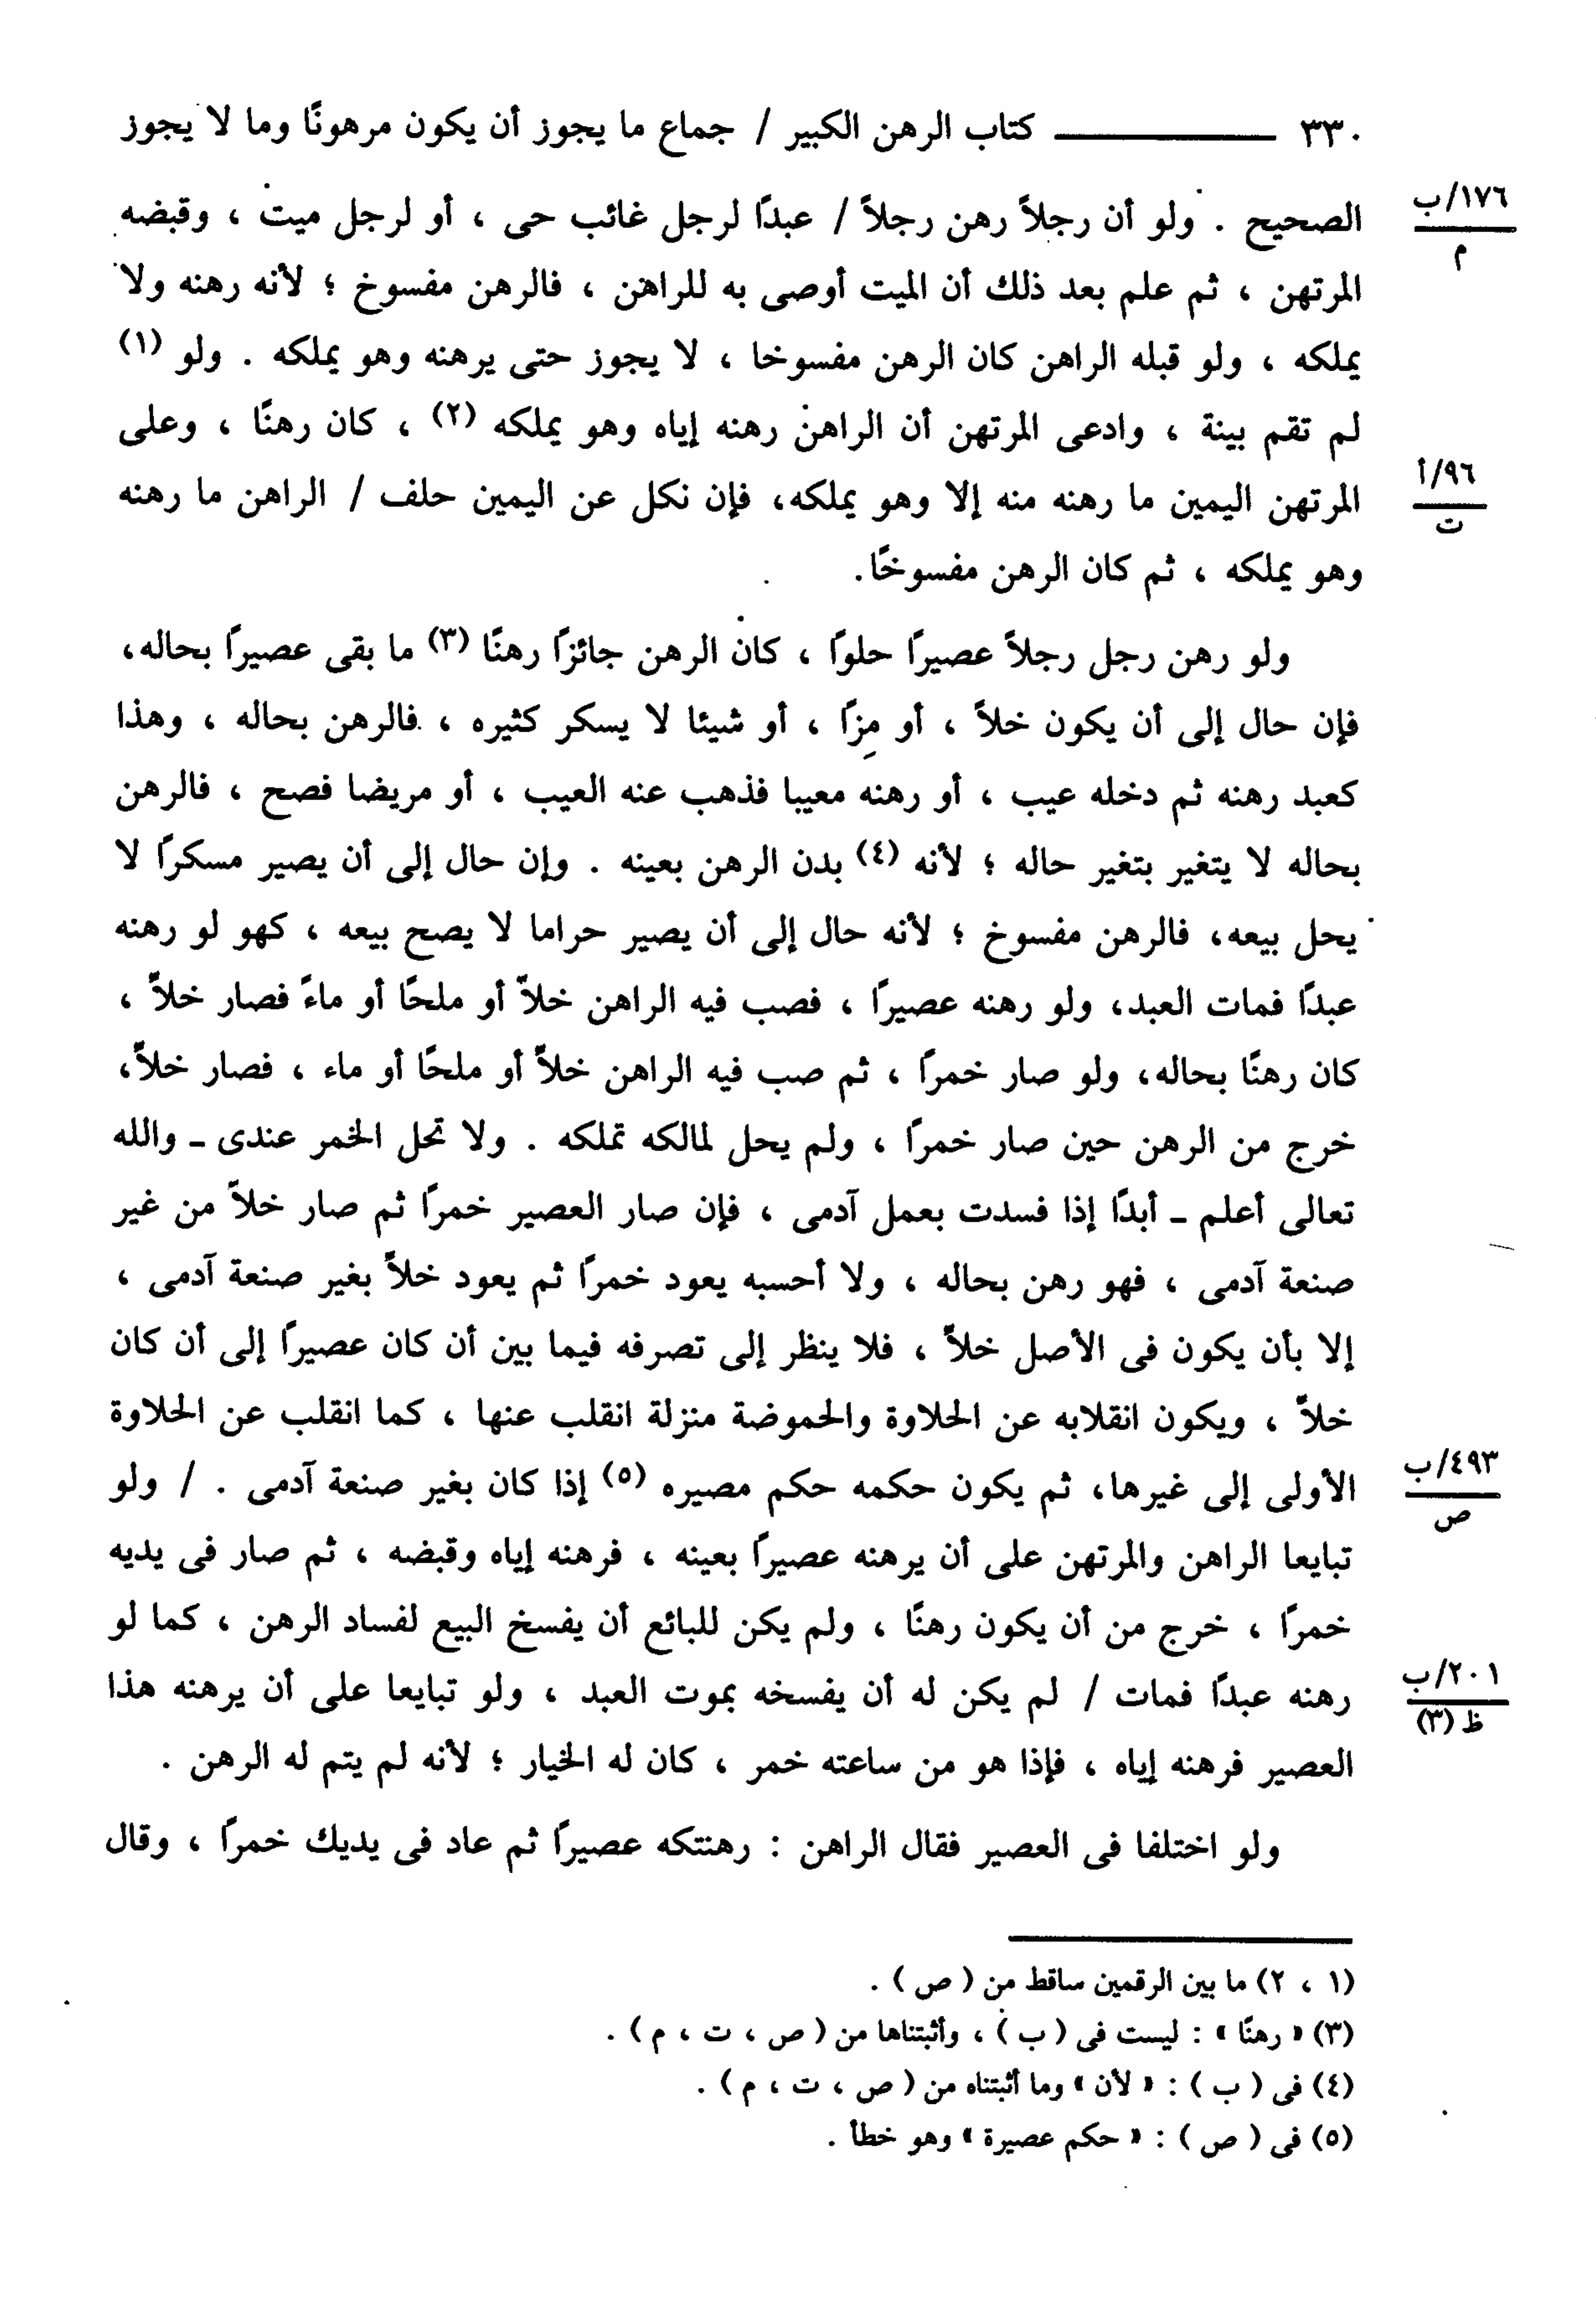 ٣٣٠ ــــــــــــ كتاب الرهن الكبير / جماع ما يجوز أن يكون مرهونًا وما لا يجوز
١٧٦/ب
م
الصحيح . ولو أن رجلاً رهن رجلاً / عبدًا لرجل غائب حى ، أو لرجل ميت ، وقبضه
المرتهن ، ثم علم بعد ذلك أن الميت أوصى به للراهن ، فالرهن مفسوخ ؛ لأنه رهنه ولا
يملكه ، ولو قبله الراهن كان الرهن مفسوخا ، لا يجوز حتى يرهنه وهو يملكه . ولو (١)
لم تقم بينة ، وادعى المرتهن أن الراهن رهنه إياه وهو يملكه (٢) ، كان رهنًا ، وعلى
٩٦/أ
ت
المرتهن اليمين ما رهنه منه إلا وهو يملكه، فإن نكل عن اليمين حلف / الراهن ما رهنه
وهو يملكه ، ثم كان الرهن مفسوخًا.
ولو رهن رجل رجلاً عصيرًا حلوًا ، كان الرهن جائزًا رهنًا (٣) ما بقى عصيرًا بحاله،
فإن حال إلى أن يكون خلاً ، أو مِزًا ، أو شيئا لا يسكر كثيره ، فالرهن بحاله ، وهذا
كعبد رهنه ثم دخله عيب ، أو رهنه معيبا فذهب عنه العيب ، أو مريضا فصح ، فالرهن
بحاله لا يتغير بتغير حاله ؛ لأنه (٤) بدن الرهن بعينه . وإن حال إلى أن يصير مسكرًا لا
يحل بيعه، فالرهن مفسوخ ؛ لأنه حال إلى أن يصير حراما لا يصح بيعه ، كهو لو رهنه
عبدًا فمات العبد، ولو رهنه عصيرًا ، فصب فيه الراهن خلاً أو ملحًا أو ماءً فصار خلاً ،
كان رهنًا بحاله، ولو صار خمرًا ، ثم صب فيه الراهن خلاً أو ملحًا أو ماء ، فصار خلاً،
خرج من الرهن حين صار خمرًا ، ولم يحل لمالكه تملكه . ولا تحل الخمر عندى ـ والله
تعالى أعلم ـ أبدًا إذا فسدت بعمل آدمى ، فإن صار العصير خمرًا ثم صار خلاً من غير
صنعة آدمى ، فهو رهن بحاله ، ولا أحسبه يعود خمرًا ثم يعود خلاً بغير صنعة آدمى ،
إلا بأن يكون فى الأصل خلاً ، فلا ينظر إلى تصرفه فيما بين أن كان عصيرًا إلى أن كان
خلاً ، ويكون انقلابه عن الحلاوة والحموضة منزلة انقلب عنها ، كما انقلب عن الحلاوة
٤٩٣/ب
ص
الأولى إلى غيرها، ثم يكون حكمه حكم مصيره (٥) إذا كان بغير صنعة آدمى . / ولو
تبايعا الراهن والمرتهن على أن يرهنه عصيرًا بعينه ، فرهنه إياه وقبضه ، ثم صار فى يديه
خمرًا ، خرج من أن يكون رهنًا ، ولم يكن للبائع أن يفسخ البيع لفساد الرهن ، كما لو
٢٠١/ب
ظ (٣)
رهنه عبدًا فمات / لم يكن له أن يفسخه بموت العبد ، ولو تبايعا على أن يرهنه هذا
العصير فرهنه إياه ، فإذا هو من ساعته خمر ، كان له الخيار ؛ لأنه لم يتم له الرهن .
ولو اختلفا فى العصير فقال الراهن : رهنتكه عصيرًا ثم عاد فى يديك خمرًا ، وقال
(١ ، ٢) ما بين الرقمين ساقط من ( ص ) .
(٣) « رهنًا » : ليست فى ( ب ) ، وأثبتناها من ( ص ، ت ، م ) .
(٤) فى ( ب ) : « لأن » وما أثبتناه من ( ص ، ت ، م ) .
(٥) فى ( ص ) : « حكم عصيرة » وهو خطأ .